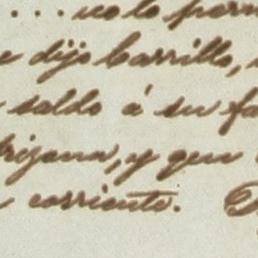 .... no lo perm
e dijo Carrillo,
saldo á su fa
brigona, y que
corriente.